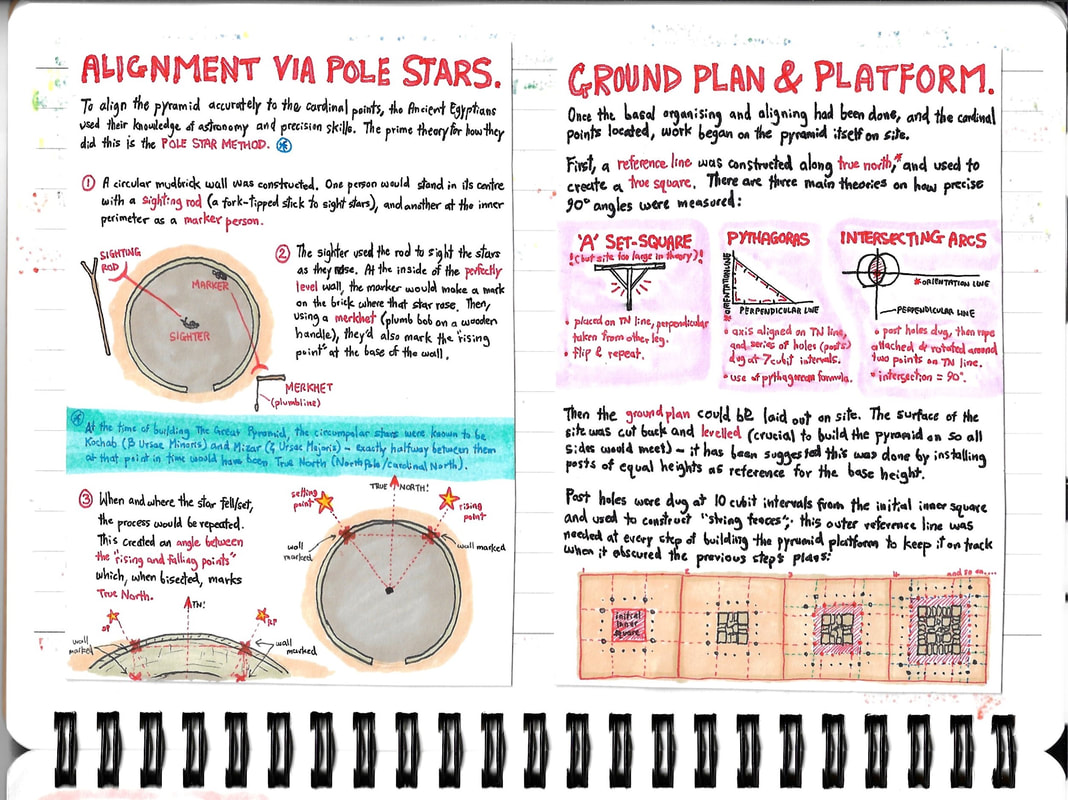 ALIGNMENT VIA POLE STARS.
To align the pyramid accurately to the cardinal points, the Ancient Egyptians
used their knowledge of astronomy and precision skills. The prime theory for how they
did this is the POLE STAR METHOD. *
① A circular mudbrick wall was constructed. One person would stand in its centre
with a sighting rod (a fork-tipped stick to sight stars), and another at the inner
perimeter as a marker person.
SIGHTING
ROD
MARKER
SIGHTER
② The sighter used the rod to sight the stars
as they rose. At the inside of the perfectly
level wall, the marker would make a mark
on the brick where that star rose. Then,
using a merkhet (plumb bob on a wooden
handle), they'd also mark the "rising
point" at the base of the wall.
MERKHET
(plumbline)
* At the time of building The Great Pyramid, the circumpolar stars were known to be
Kochab (β Ursae Minoris) and Mizar (ζ Ursae Majoris) – exactly halfway between them
at that point in time would have been True North (North Pole/cardinal North).
③ When and where the star fell/set,
the process would be repeated.
This created an angle between
the "rising and falling points"
which, when bisected, marks
True North.
TRUE NORTH!
setting
point
rising
point
wall
marked
wall marked
TN!
SP
RP
wall
marked
wall
marked
GROUND PLAN & PLATFORM.
Once the basal organising and aligning had been done, and the cardinal
points located, work began on the pyramid itself on site.
First, a reference line was constructed along true north,* and used to
create a true square. There are three main theories on how precise
90° angles were measured:
'A' SET-SQUARE
!(but site too large in theory)!
• placed on TN line, perpendicular
taken from other leg.
• flip & repeat.
PYTHAGORAS
*ORIENTATION LINE
PERPENDICULAR LINE
• axis aligned on TN line,
and series of holes (posts)
dug at 7 cubit intervals.
• use of pythagorean formula.
INTERSECTING ARCS
*ORIENTATION LINE
PERPENDICULAR LINE
• post holes dug, then rope
attached & rotated around
two points on TN line.
• intersection = 90°.
Then the ground plan could be laid out on site. The surface of the
site was cut back and levelled (crucial to build the pyramid on so all
sides would meet) – it has been suggested this was done by installing
posts of equal heights as reference for the base height.
Post holes were dug at 10 cubit intervals from the initial inner square
and used to construct "string fences"; this outer reference line was
needed at every step of building the pyramid platform to keep it on track
when it obscured the previous step's plans:
1
2
3
4
and so on....
initial
inner
square